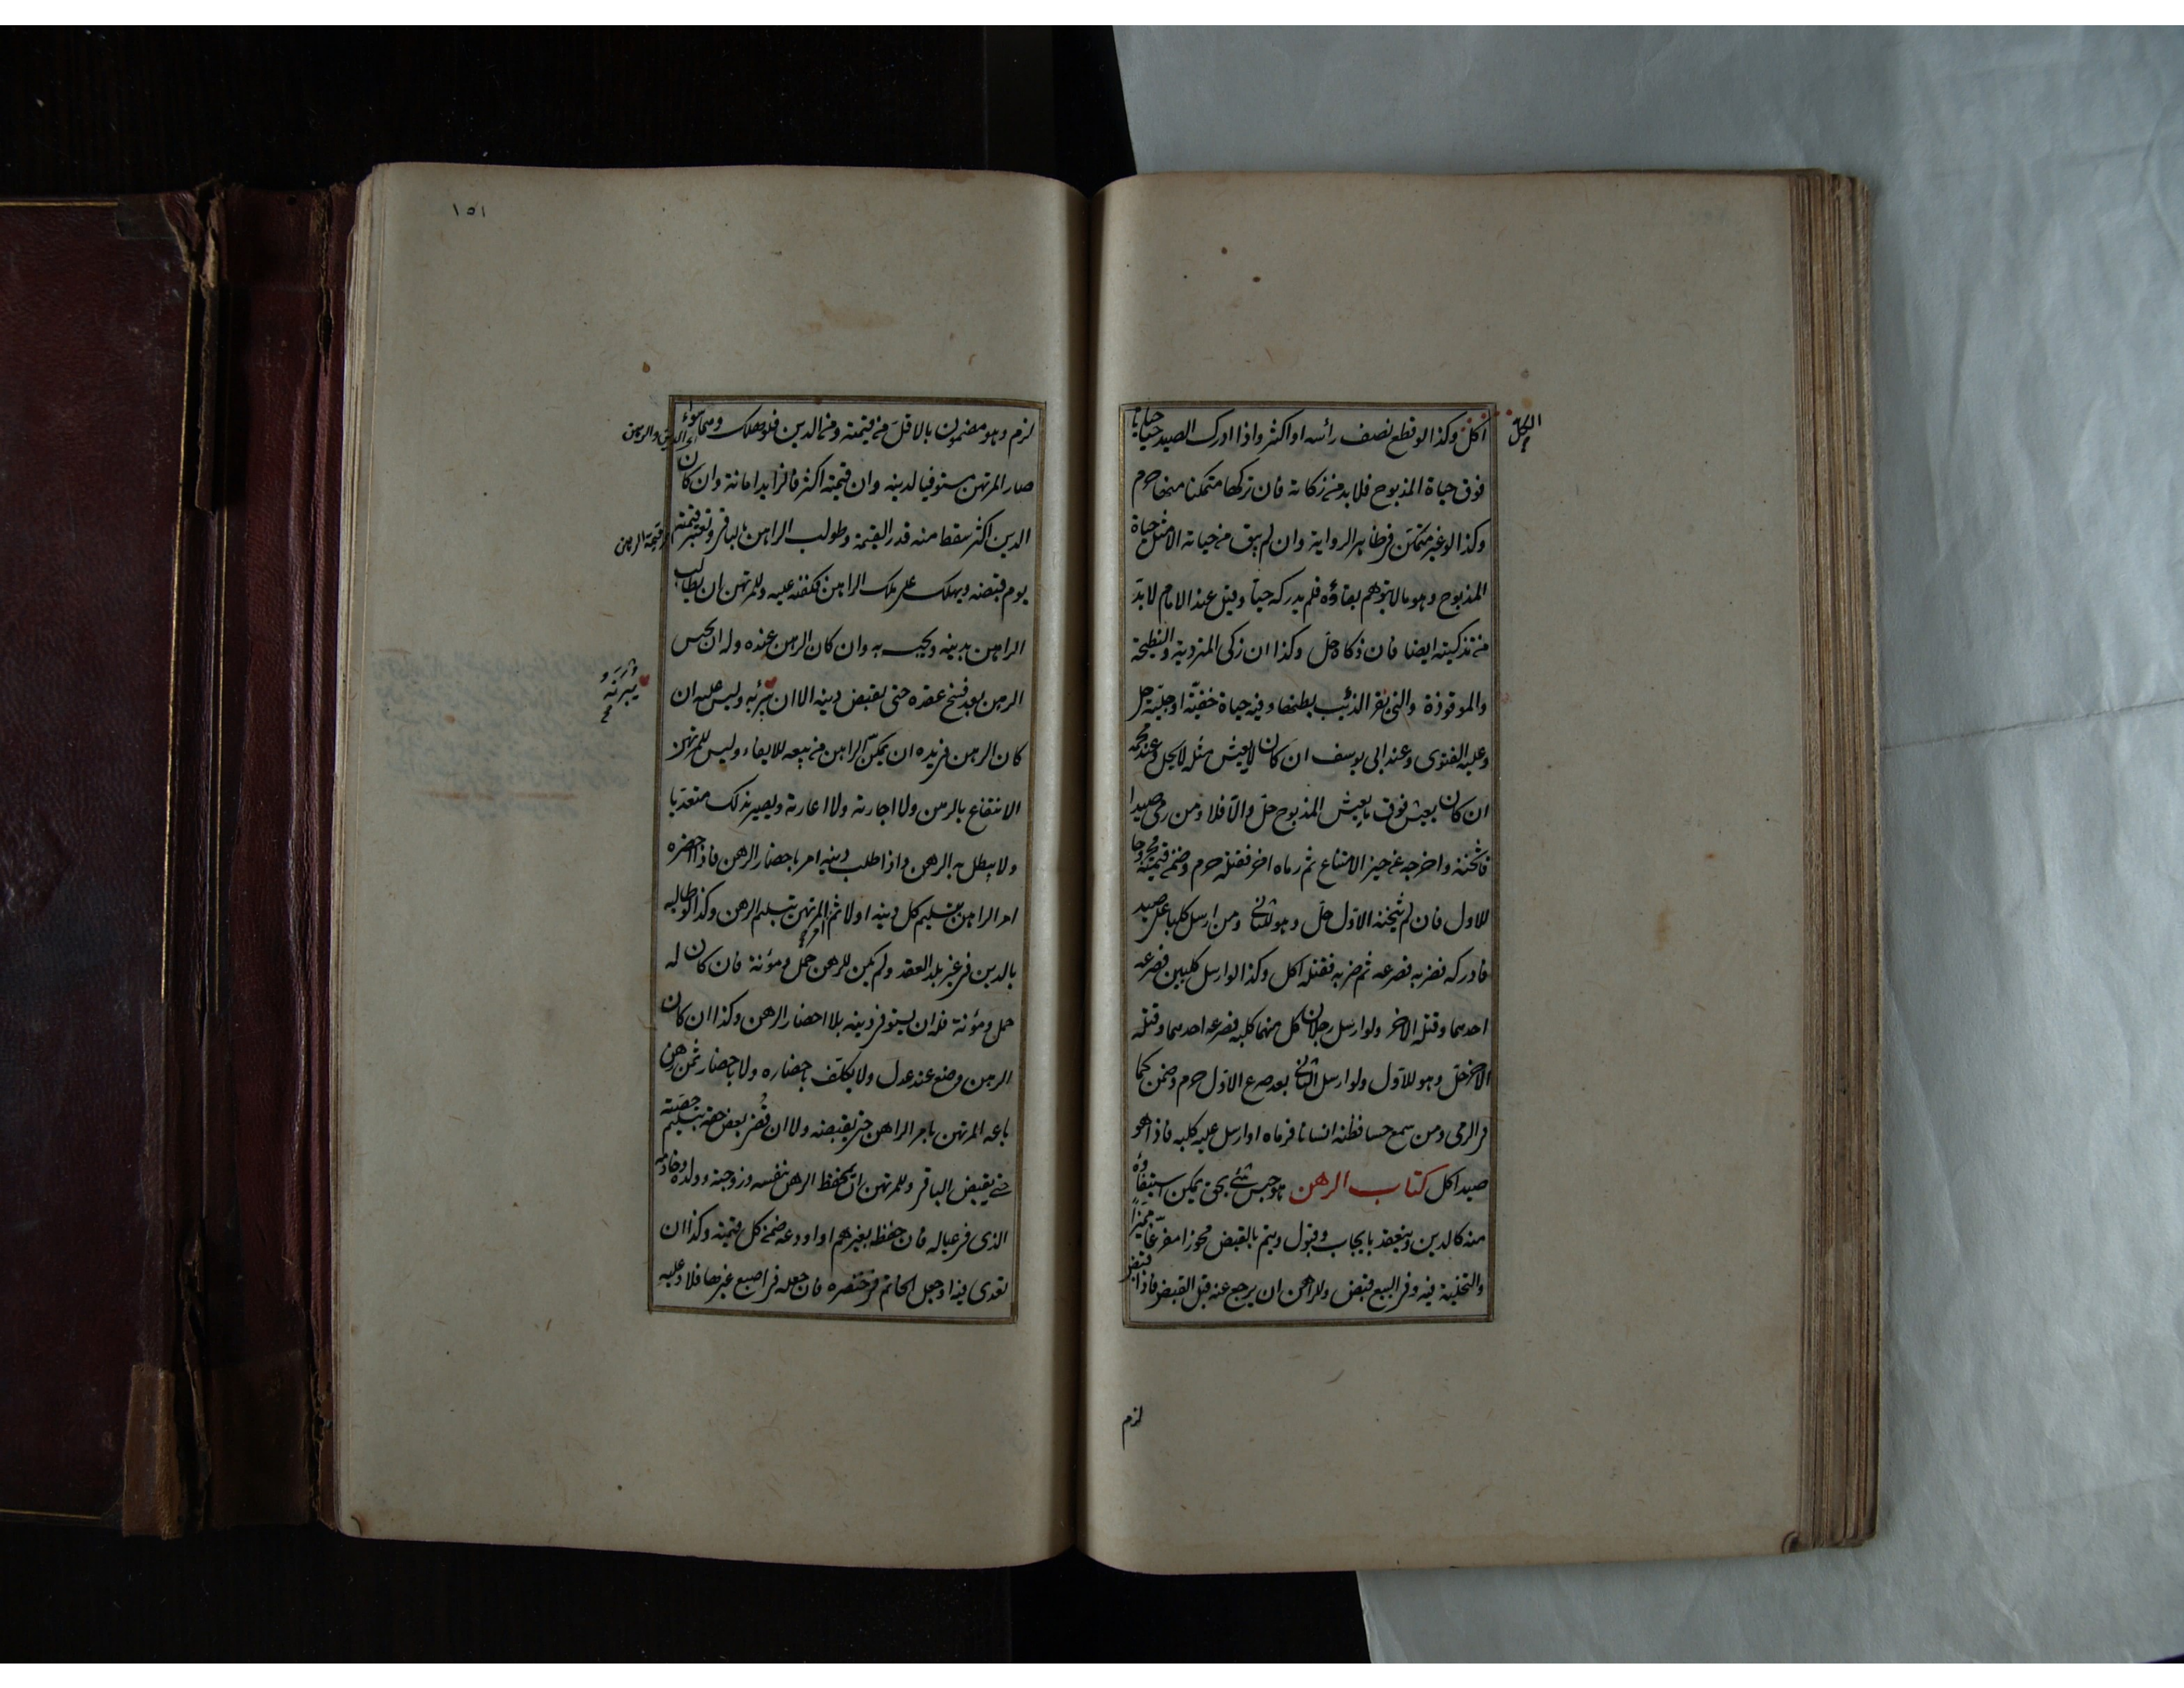 اكل وكذا لو قطع نصف رأسه او اكثر واذا ادرك الصيد حيا حياة
فوق حياة المذبوح فلا بد من زكاته فان تركها متمكنا منها حرم
وكذا لو غير متمكن فى ظاهر الرواية وان لم يبق من حياته الا مثل حياة
المذبوح وهو ما لا يتوهم بقاؤه فلم يدركه حيا وقيل عند الامام لا بد
من تذكيته ايضا فان ذكاه حل وكذا ان زكى المتردية والنطيحة
والموقوذة والتى بقر الذئب بطنها وفيه حياة خفية او جلية حل
وعليه الفتوى وعند ابى يوسف ان كان لا يعيش مثله لا يحل وعند محمد
ان كان يعيش فوق ما يعيش المذبوح حل والا فلا ومن رمى صيدا
فاثخنه واخرجه عن حيز الامتناع ثم رماه اخر فقتله حرم وضمن قيمته مجروحا
للاول فان لم يثخنه الاول حل وهو للثانى ومن ارسل كلبا على صيد
فادركه فضربه فصرعه ثم ضربه فقتله اكل وكذا لو ارسل كلبين فصرعه
احدهما وقتله الاخر ولو ارسل رجلان كل منهما كلبه فصرعه احدهما وقتله
الاخر حل وهو للاول ولو ارسل الثانى بعد صرع الاول حرم وضمن كما
فى الرمى ومن سمع حسا فظنه انسانا فرماه او ارسل عليه كلبه فاذا هو
صيد اكل كتاب الرهن هو حبس شئ بحق يمكن استيفاؤه
منه كالدين وينعقد بايجاب وقبول ويتم بالقبض محوزا مفرغا مميزا
والتخلية فيه وفى البيع قبض وللراهن ان يرجع عنه قبل القبض فاذا قبض
لزم
١٥١
لزم وهو مضمون بالاقل من قيمته ومن الدين فلو هلك وهما سواء
اى الدين والرهن
صار المرتهن مستوفيا لدينه وان قيمته اكثر فالزايد امانة وان كان
الدين اكثر سقط منه قدر القيمة وطولب الراهن بالباقى وتعتبر قيمته
قيمة الرهن
يوم قبضه ويهلك على ملك الراهن فكفنه عليه وللمرتهن ان يطالب
الراهن بدينه ويحبسه به وان كان الرهن عنده وله ان يحبس
الرهن بعد فسخ عقده حتى يقبض دينه الا ان يبرئه وليس عليه ان
كان الرهن فى يده ان يمكن الراهن من بيعه للايفاء وليس للمرتهن
الانتفاع بالرهن ولا اجارته ولا اعارته ويصير بذلك متعديا
ولا يبطل به الرهن واذا طلب دينه امر باحضار الرهن فاذا احضره
امر الراهن بتسليم كل دينه اولا ثم امر المرتهن بتسليم الرهن وكذا لو طالبه
بالدين فى غير بلد العقد ولم يكن للرهن حمل ومؤنة فان كان له
حمل ومؤنة فله ان يستوفى دينه بلا احضار الرهن وكذا ان كان
الرهن وضع عند عدل ولا يكلف باحضاره ولا باحضار ثمن رهن
باعه المرتهن بامر الراهن حتى يقبضه ولا ان قضى بعض حقه بتسليم حصته
حتى يقبض الباقى وللمرتهن ان يحفظ الرهن بنفسه وزوجته وولده وخادمه
الذى فى عياله فان حفظه بغيرهم او اودعه ضمن كل قيمته وكذا ان
تعدى فيه او جعل الخاتم فى خنصره فان جعله فى اصبع غيرها فلا وعليه